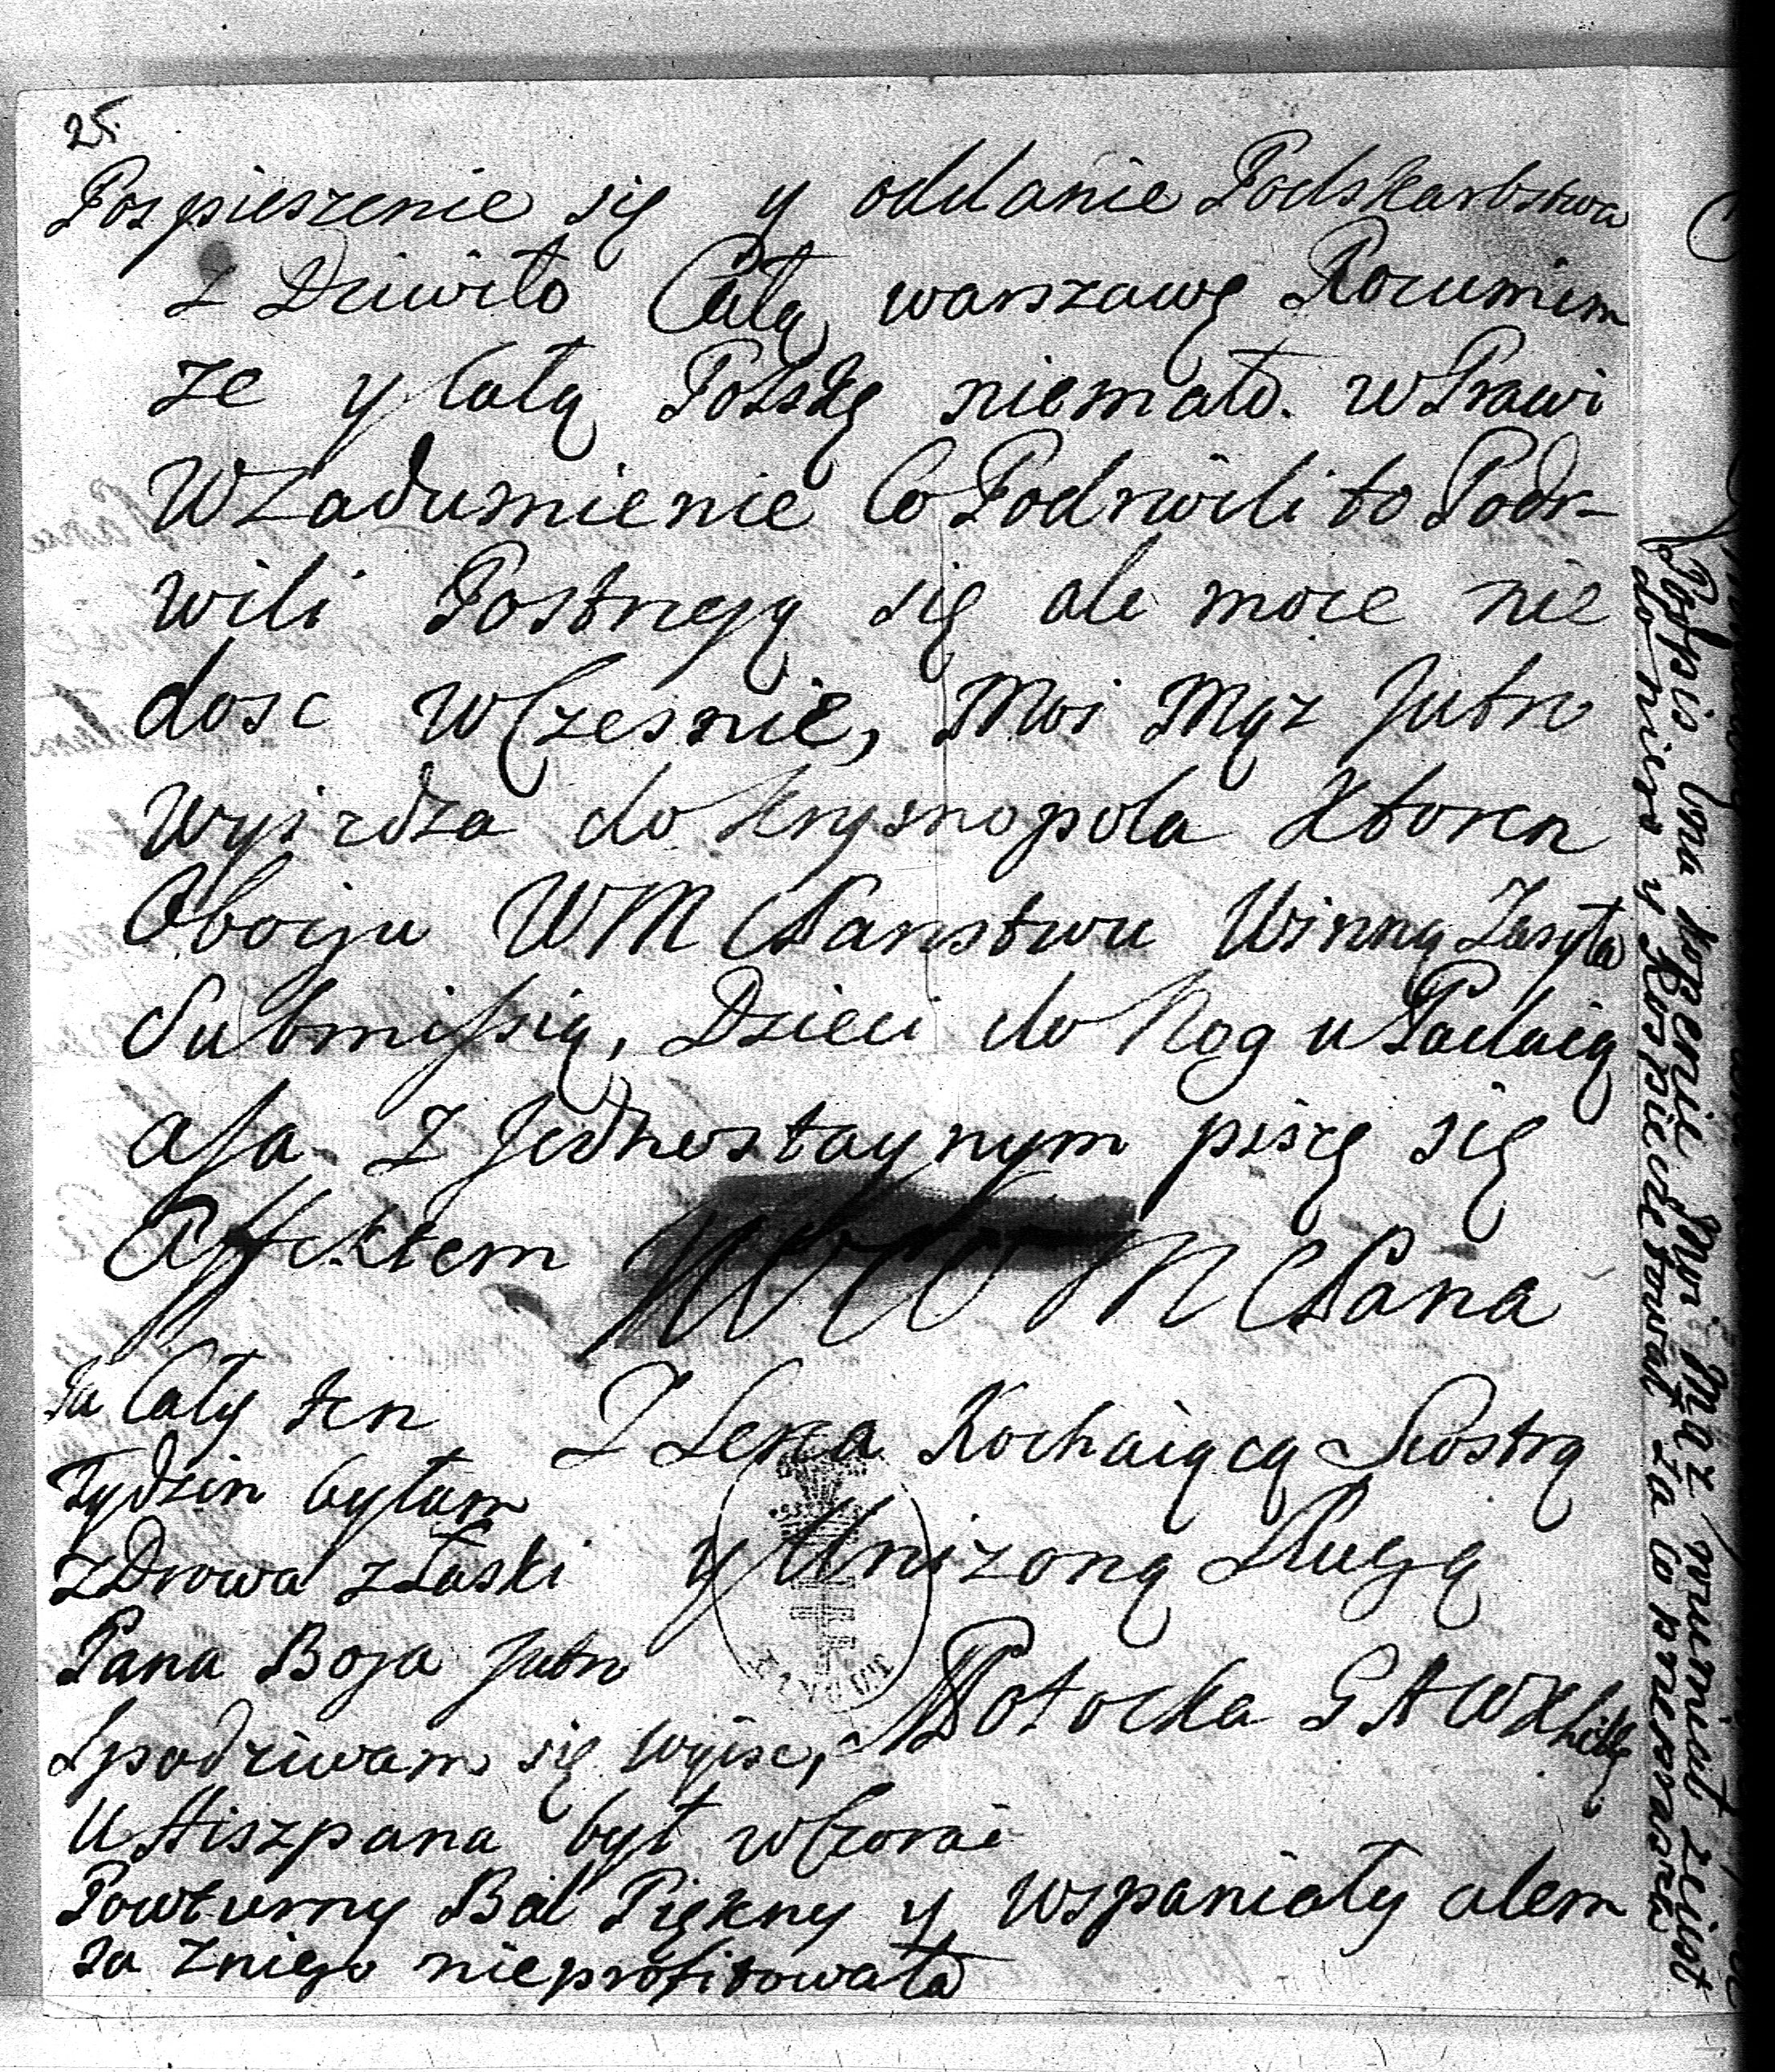 25.
Pospieszenie się y oddanie Podskarbstwa
z Dziwiło Całą warszawę Rozumiem
ze y Całą Polskę niemało. w Prawi
W Zadumienie Co Podrwili to Podr-
wili Postrzegą się ale moze nie
dosc w Czesnie, Moi Mąz Jutro
Wyizdza do Krysnopola Ktoren
Oboygu WM Państwu Winną Zasyła
Submissią, Dzieci do Nog u Padaią
a Ja z Jednostaynym piszę się
Affektem WM Pana
Z Serca Kochaiącą Siostrą
y Unizoną Sługą
MPotocka G A W X Litt
Ja Cały ten
Tydzin byłam
z Drowa z Łaski
Pana Boga Jutro
Spodziwam się wyisc,
U Hiszpana był w Czorai
Powturny Bal Piękny y wspaniały alem
Ja Zniego nieprofitowała
Mąz
do niego y za to przeprasza